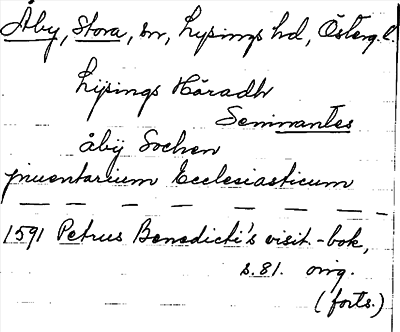 Åby, Stora, sn, Lysings hd, Österg.l.
Lÿsings Häradh
Seminantes
åbÿ Sochen
jnuentarium Ecclesiasticum
1591 Petrus Benedicti's visit.-bok,
s. 81. orig.
(forts.)